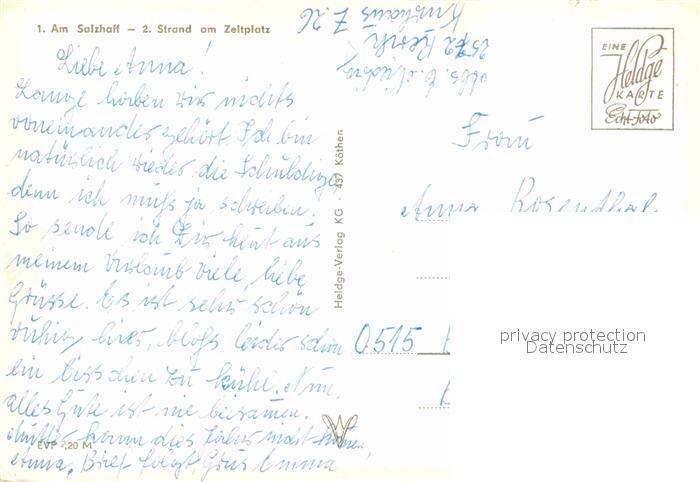 1. Am Salzhaff – 2. Strand am Zeltplatz
Liebe Anna!
Lange haben wir nichts
voneinander gehört. Ich bin
natürlich wieder die Schuldige,
denn ich muß ja schreiben.
So sende ich Dir heut aus
meinem Urlaub viele, liebe
Grüsse. Es ist sehr schön
ruhig hier, bloß leider schon
ein bisschen zu kühl. Nun
alles Gute ist nie beisamen.
Mutter kann dies Jahr nicht kommen,
Anna, Brief folgt, Grus Emma
EVP -,20 M
Heldge-Verlag KG · 437 Köthen
Abs. E.
2572 Rerik
Kurhaus Z. 26
EINE
Heldge
KARTE
Echt-Foto
Frau
Anna Rosenthal
0515
privacy protection
Datenschutz